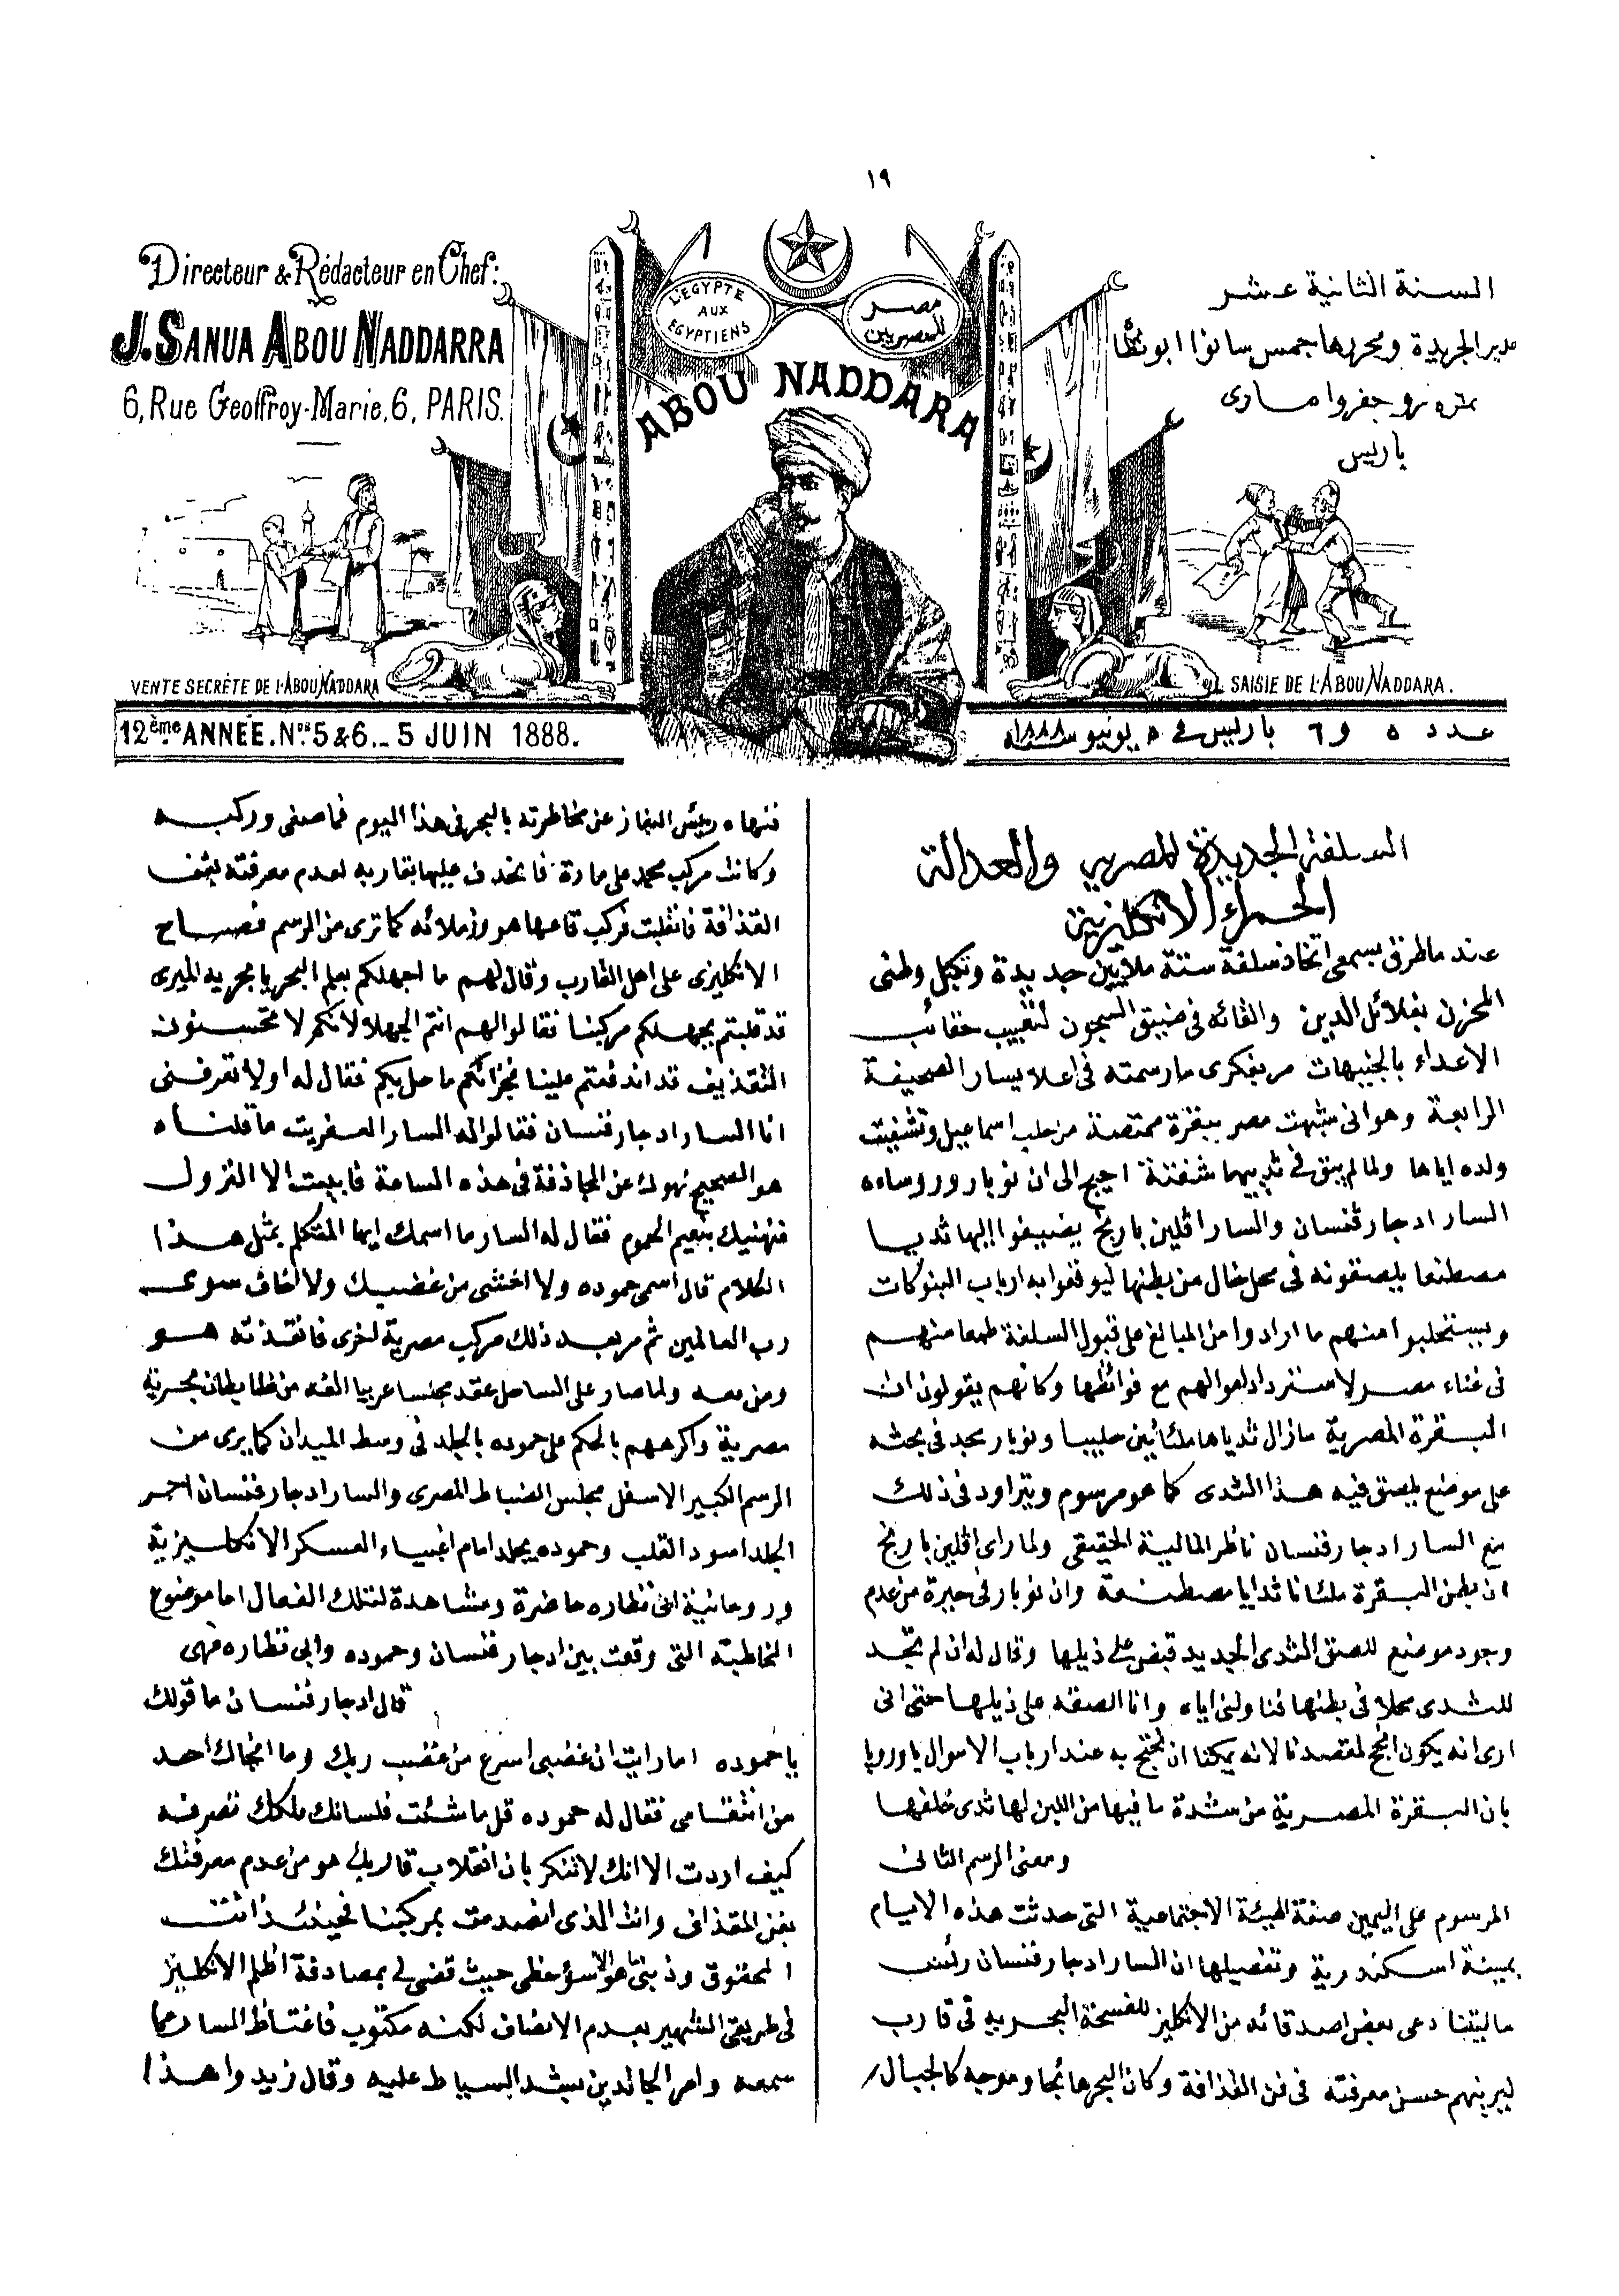 ١٩
Directeur & Rédacteur en Chef:
J. SANUA ABOU NADDARRA
6, Rue Geoffroy-Marie, 6, PARIS.
L'EGYPTE
AUX
EGYPTIENS
مصر
للمصريين
ABOU NADDARA
السنة الثانية عشر
مدير الجريدة ومحررها جمس سانوا ابو نظارة
نمره ٦ رو جفروا مارى
باريس
VENTE SECRÈTE DE L'ABOU NADDARA
SAISIE DE L'ABOU NADDARA.
12ème ANNÉE. Nos 5 & 6 _ 5 JUIN 1888.
عدد ٥ و ٦ باريس فى ٥ يونيو سنة ١٨٨٨
السلفة الجديدة المصريه والعدالة
الحمراء الانكليزية
عند ما طرق بسمعى اتخاذ سلفة ستة ملايين جديدة وتكبل وطنى
المحزن بغلائل الدين والقائه فى ضيق السجون لتغييب حقائب
الاعداء بالجنيهات مر بفكرى ما رسمته فى اعلا يسار الصحيفة
الرابعة وهو انى شبهت مصر ببقرة ممتصة من حلب اسماعيل وتشفيت
ولده اياها ولما لم يبق فى ثدييها شفتة احيج الى ان نوبار وروساءه
السار ادجار فنسان والسار اڤلين بارنج يضيفوا اليها ثديا
مصطنعا يلصقونه فى محل خال من بطنها ليوقفوا به ارباب البنوكات
ويستحلبوا منهم ما ارادوا من المبالغ على قبول السلفة طمعا منهم
فى غناء مصر لاسترداد اموالهم مع فوائظها وكانهم يقولون ان
البقرة المصرية مازال ثدياها ملئانين حليبا ونوبار يجد فى بحثه
على موضع يلصق فيه هذا الثدى كما هو مرسوم ويتراود فى ذلك
مع السار ادجار فنسان ناظر المالية الحقيقى ولما راى اڤلين بارنج
ان بطن البقرة ملئانا ثدايا مصطنعة وان نوبار فى حيرة من عدم
وجود موضع للصق الثدى الجديد قبض على ذيلها وقال له ان لم تجد
للثدى محلا فى بطنها فناولنى اياه وانا الصقه على ذيلها حتى انى
ارى انه يكون انجح لمقصدنا لانه يمكنا ان نحتج به عند ارباب الاموال باوروپا
بان البقرة المصرية من شدة ما فيها من اللبن لها ثدى خلفها
ومعنى الرسم الثانى
المرسوم على اليمين صفة الهيئة الاجتماعية التى حدثت هذه الايام
بمينة اسكندرية وتفصيلها ان السار ادجار فنسان رئيس
ماليتنا دعى بعض اصدقائه من الانكليز للفسحة البحريه فى قارب
ليرينهم حسن معرفته فى فن القذافة وكان البحر هائجا وموجه كالجبال
فنهاه رييس النجاز عن مخاطرته بالبحر فى هذا اليوم فما صغى وركبه
وكانت مركب محمد على مارة فانحدف عليها بقاربه لعدم معرفته بفن
القذافة فانقلبت فركب قاعها هو وزملائه كما ترى من الرسم فصاح
الانكليزى على اهل القارب وقال لهم ما اجهلكم بعلم البحر يا بحريه الميرى
قد قلبتم بجهلكم مركبنا فقالوا لهم انتم الجهلا لانكم لا تحسنون
التقذيف قد اندفعتم علينا فجزائكم ما حل بكم فقال له اولا تعرفنى
انا السار ادجار فنسان فقالوا له السار العفريت ما قلناه
هو الصحيح نهوك عن المجاذفة فى هذه الساعة فابيت الا النزول
فنهنيك بنعيم الحموم فقال له السار ما اسمك ايها المتكلم بمثل هذا
الكلام قال اسمى حموده ولا اخشى من غضبك ولا اخاف سوى
رب العالمين ثم مر بعد ذلك مركب مصرية اخرى فانقذته هو
ومن معه ولما صار على الساحل عقد مجلسا عربيا الفه من ظابطان بحرية
مصرية واكرههم بالحكم على حموده بالجلد فى وسط الميدان كما يرى من
الرسم الكبير الاسفل مجلس الضباط المصرى والسار ادجار فنسان احمر
الجلد اسود القلب وحموده يجلد امام اغبياء العسكر الانكليزية
وروحانية ابى نظاره حاضرة ومشاهدة لتلك الفعال اما موضوع
المخاطبة التى وقعت بين ادجار فنسان وحموده وابى نظاره فهى
قال ادجار فنسان ما قولك
يا حموده اما رايت ان غضبى اسرع من غضب ربك وما انجاك احد
من انتقامى فقال له حموده قل ما شئت فلسانك ملكك تصرفه
كيف اردت الا انك لا تنكر بان انقلاب قاربك هو من عدم معرفتك
بفن المقذاف وانت الذى انصدمت بمركبنا فحينئذ انت
المحقوق وذنبى هو الا سؤ حظى حيث قضى لى بمصادفة اظلم الانكليز
فى طريقى الشهير بعدم الانصاف لكنه مكتوب فاغتاظ السار مما
سمعه وامر الجالدين بشد السياط عليه وقال زيدوا هذا